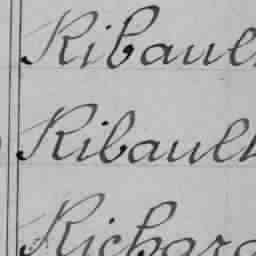 Ribault
Ribault
Richard